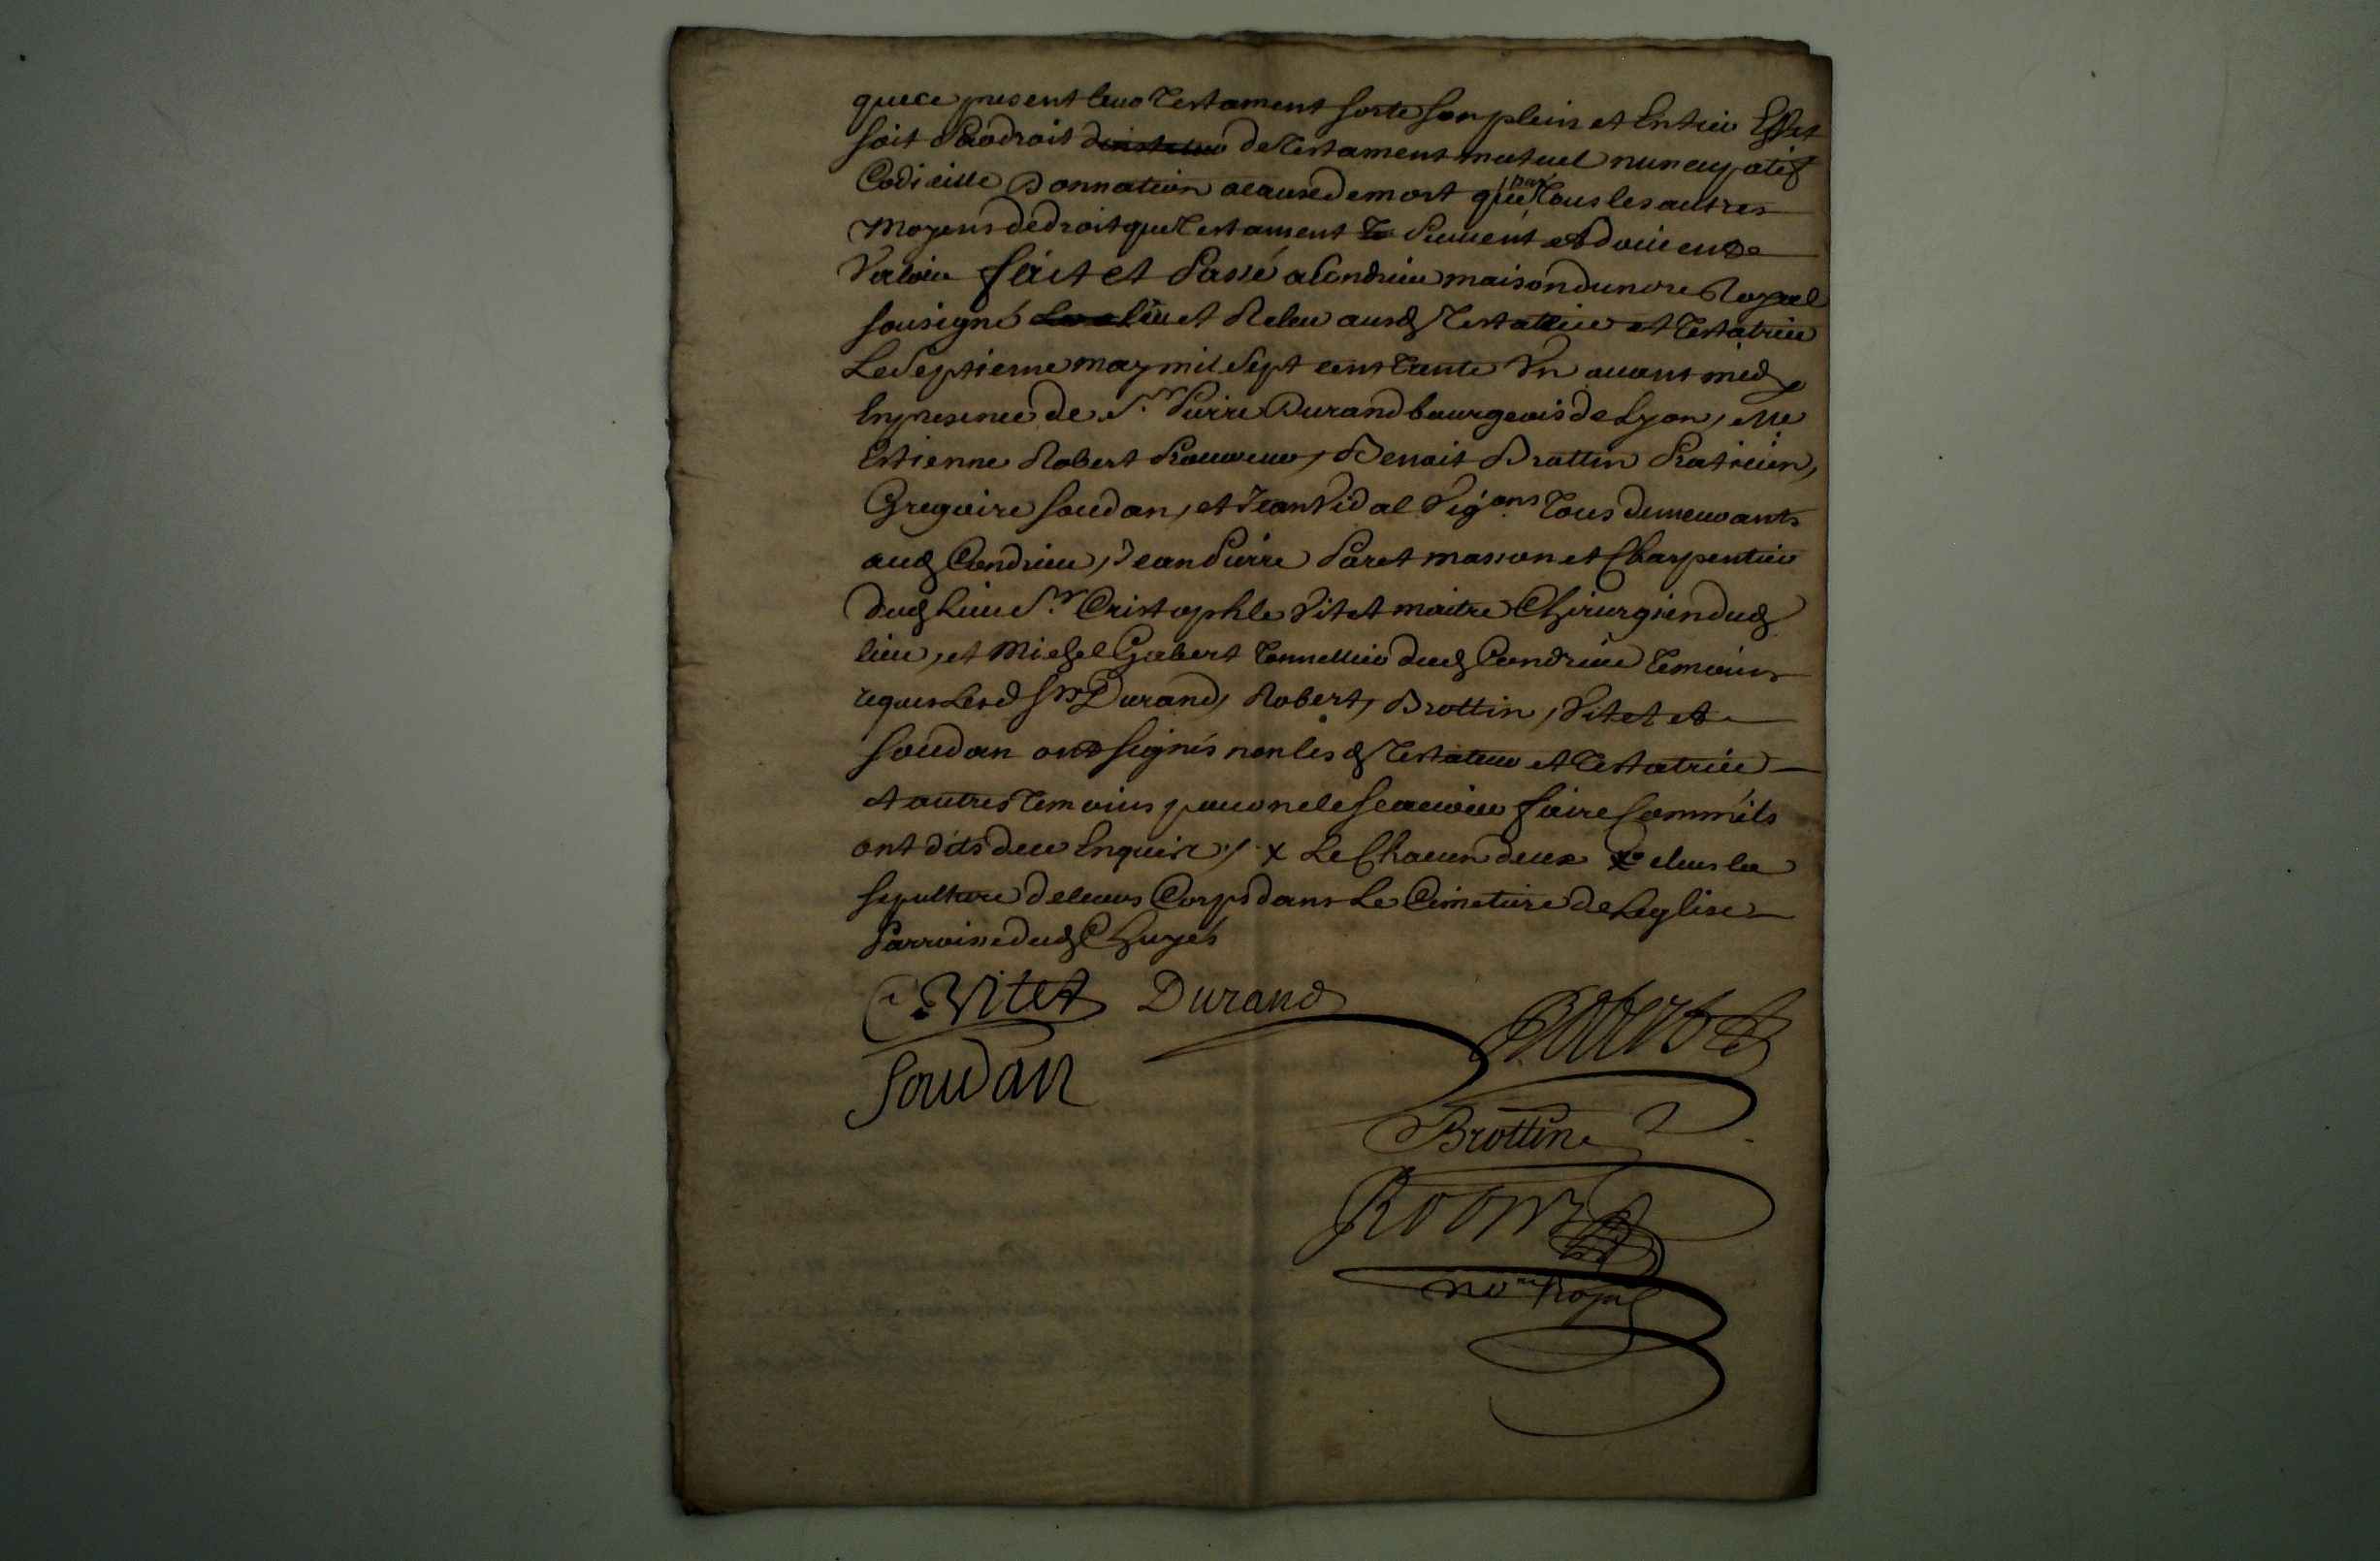 que ce present leur Testament sorte son plein et Entier Effet
soit Par droit de Testament mutuel nuncupatif
Codicille Donnation a cause de mort que par Tous les autres
Moyens de droit que Testament Peuvent et doivent
Valoir fait et Passé a Condrieu maison du nore Royal
sousigné leu et Releu ausd Testateur et Testatrice
Le Septieme may mil Sept cent Trente Un avant midy
En presence de Sr Pierre Durand bourgeois de Lyon, Me
Estienne Robert Procureur, Benoit Brottin Praticien,
Gregoire Soudan, et Jean Vidal Vigons Tous demeurants
aud Condrieu, Jean Pierre Paret masson et Charpentier
dud Lieu Sr Cristophle Vitet maitre Chirurgien dud
lieu, et Michel Gabert Tonnellier dud Condrieu Temoins
requis Lesd Srs Durand, Robert, Brottin, Vitet et
Soudan ont signés non lesd Testateur et Testatrice
et autres Temoins pour ne le scavoir faire Comm'ils
ont dits de ce Enquis ./. x Le Chacun deux elus la
sepulture de leurs Corps dans Le Cimetiere de Leglise
Parroisse dud Chuyés
C. Vitet Durand
Robert
Soudan
Brottin
nore Royal